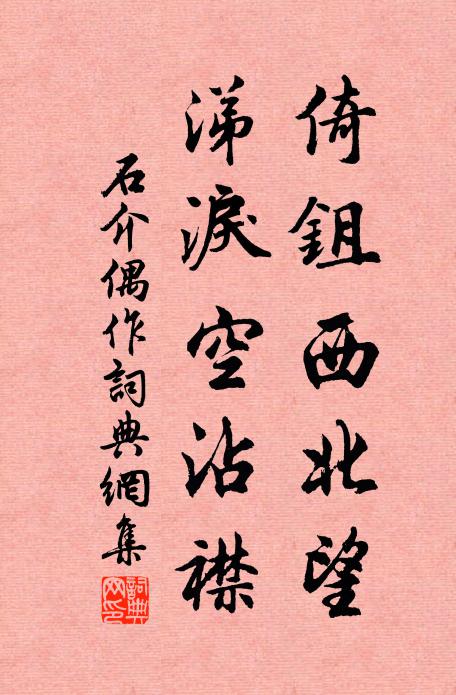 倚鉏西北望
涕淚空沾襟
石介偶作詞典網集
詞典網印